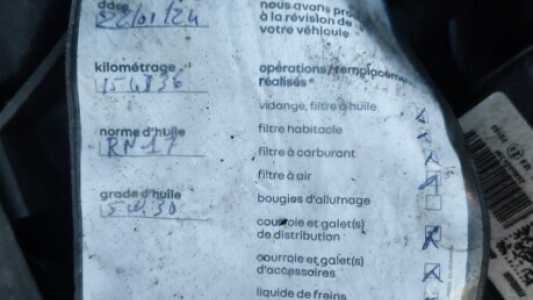 date
22/01/24
kilométrage
norme d'huile
RN 17
grade d'huile
5W30
nous avons
à la révision de
votre véhicule
opérations/remplacements
réalisés*
vidange, filtre à huile
filtre habitacle
filtre à carburant
filtre à air
bougies d'allumage
courroie et galet(s)
de distribution
courroie et galet(s)
d'accessoires
liquide de freins